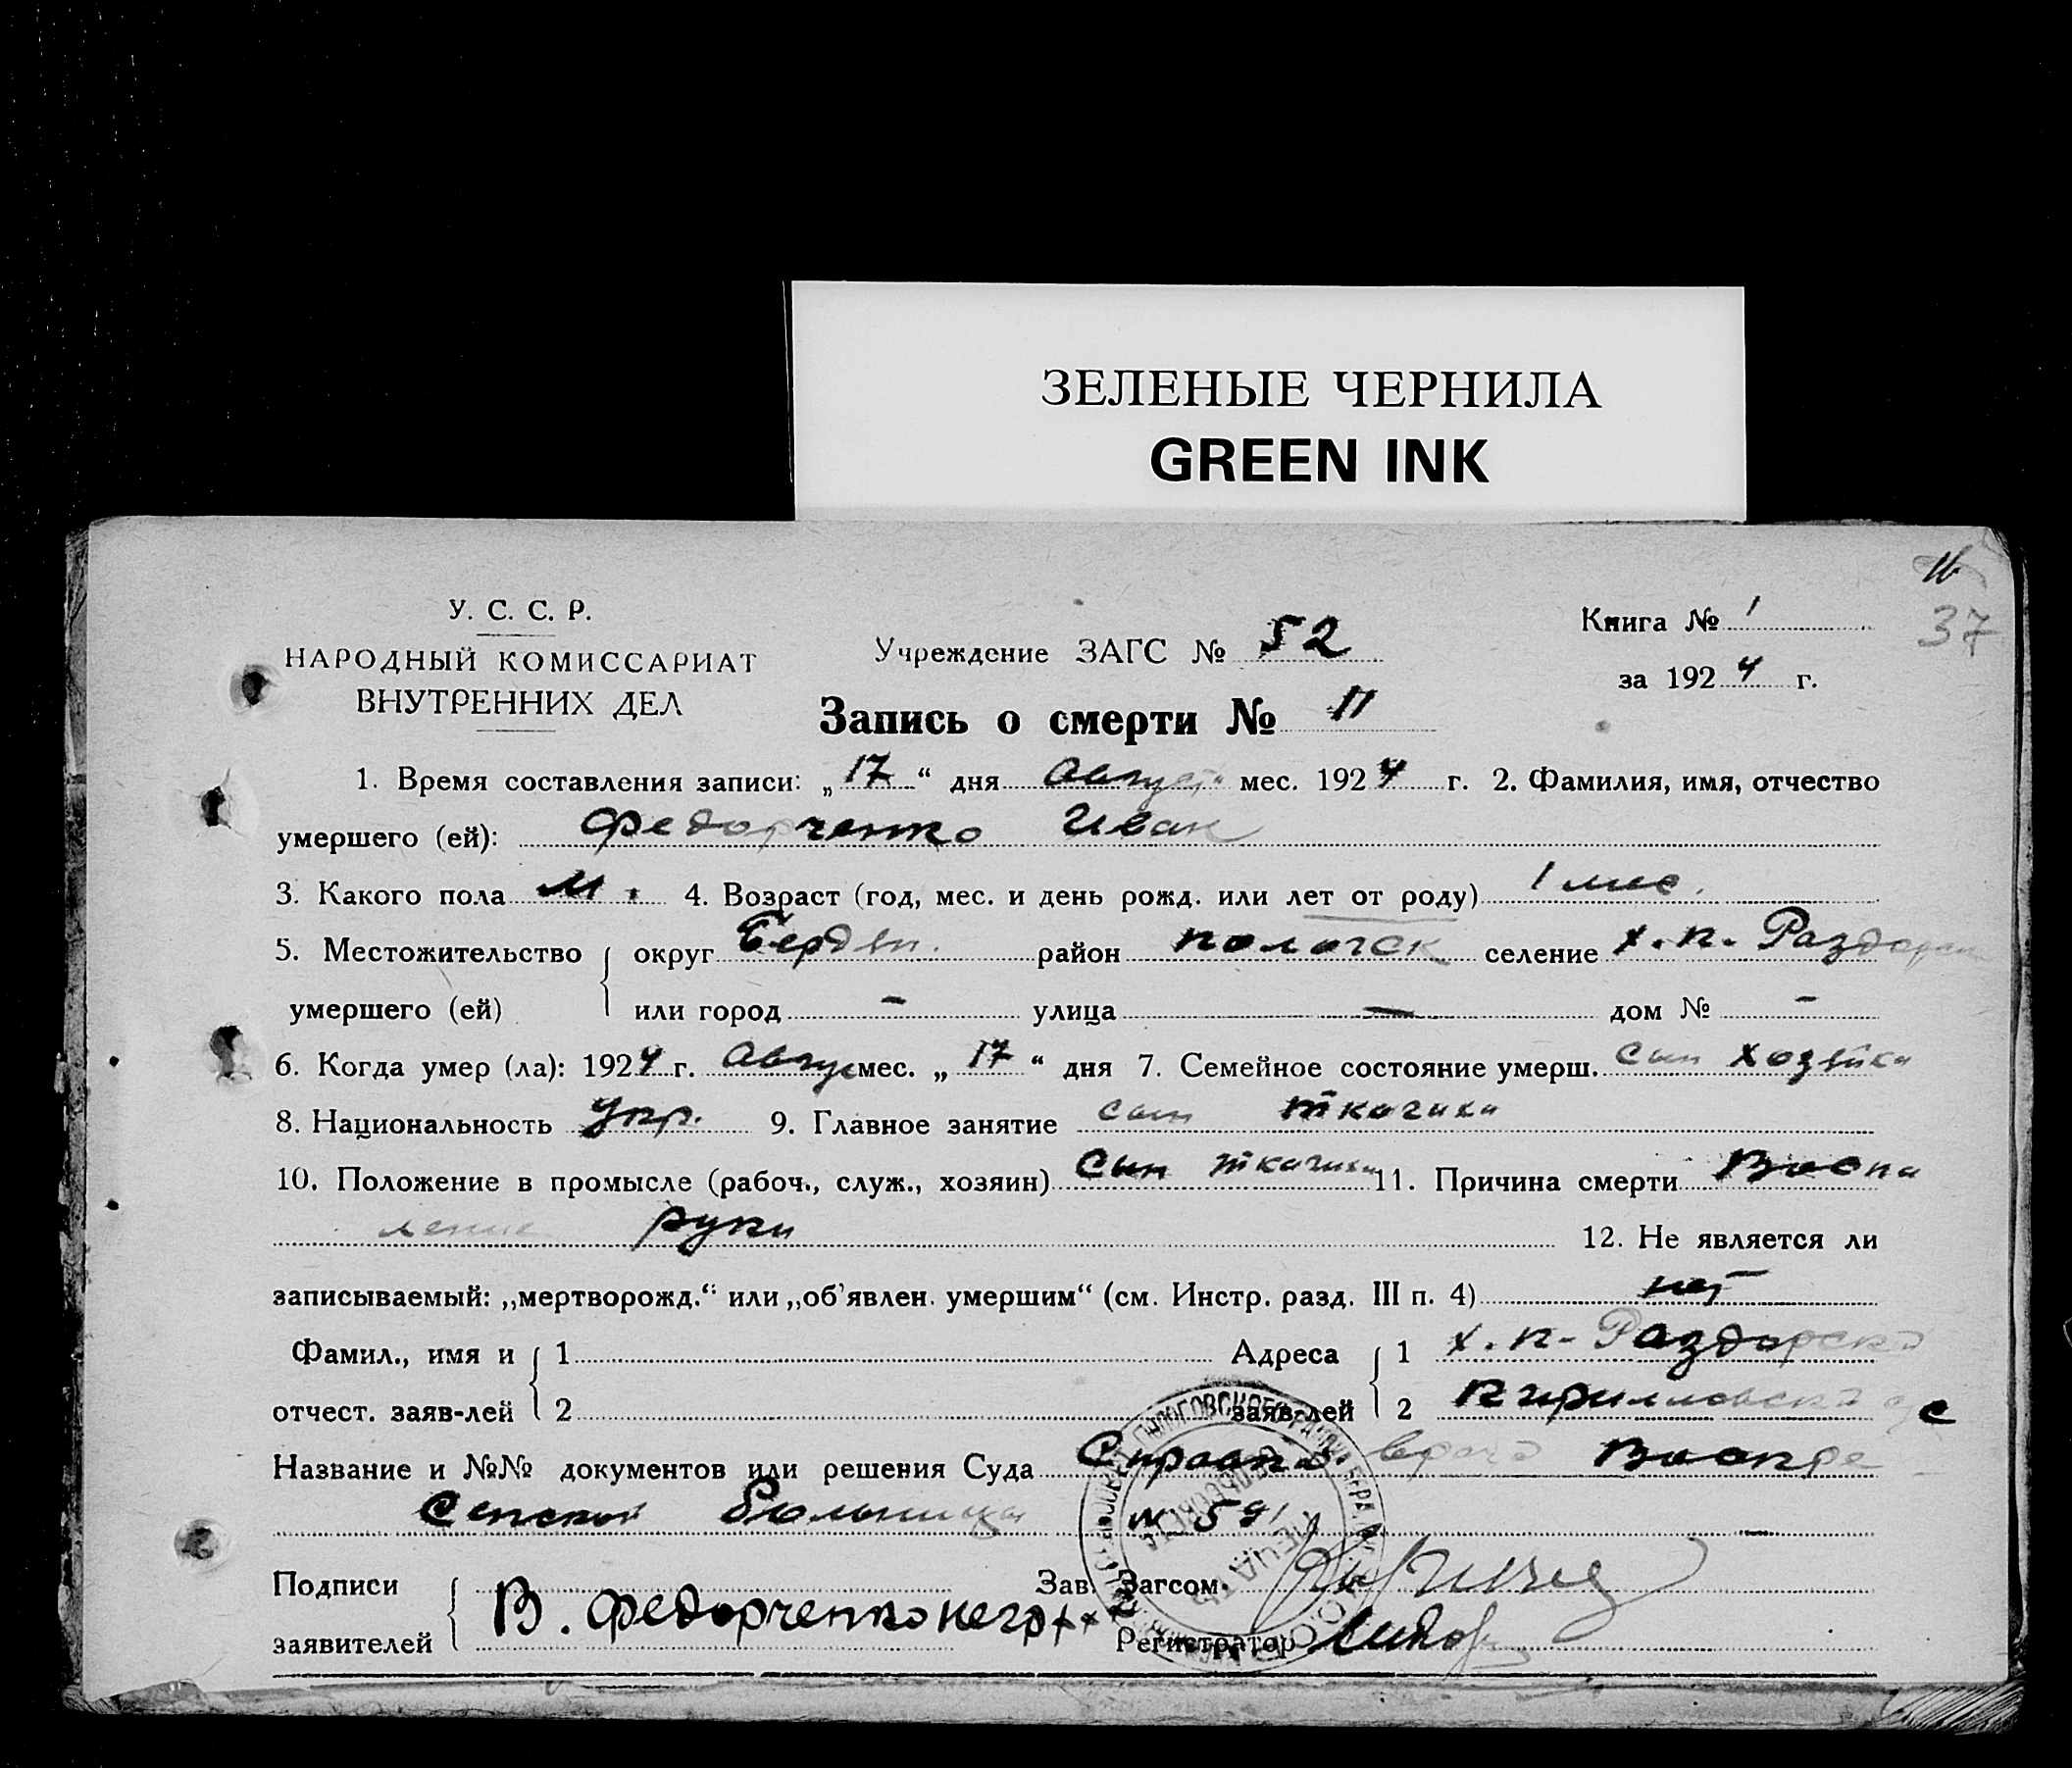 ЗЕЛЕНЫЕ ЧЕРНИЛА
GREEN INK
37
У. С. С. Р.
НАРОДНЫЙ КОМИССАРИАТ
ВНУТРЕННИХ ДЕЛ
Учреждение ЗАГС № 52
Книга № 1
за 1924 г.
Запись о смерти № 11
1. Время составления записи: „17“ дня Август мес. 1924 г. 2. Фамилия, имя, отчество
умершего (ей): Федорченко Иван
3. Какого пола м. 4. Возраст (год, мес. и день рожд. или лет от роду) 1 мес.
5. Местожительство округ Бердян. район пологск селение х. п. Раздорск
умершего (ей) или город - улица — дом № -
6. Когда умер (ла): 1924 г. Авгус мес. „17“ дня 7. Семейное состояние умерш. сын хозяйки
8. Национальность Укр. 9. Главное занятие сын ткачихи
10. Положение в промысле (рабоч., служ., хозяин) Сын ткачихи 11. Причина смерти Воспа
ление руки 12. Не является ли
записываемый: „мертворожд.“ или „об’явлен. умершим“ (см. Инстр. разд. III п. 4) нет
Фамил., имя и 1 Адреса 1 х. п- Раздорск
отчест. заяв-лей 2 заяв-лей 2 Кирилловск
Название и №№ документов или решения Суда врача Воскре
Сенской больницы № 591
Подписи В. Федорченко негр +++ Зав. Загсом
заявителей Регистратор